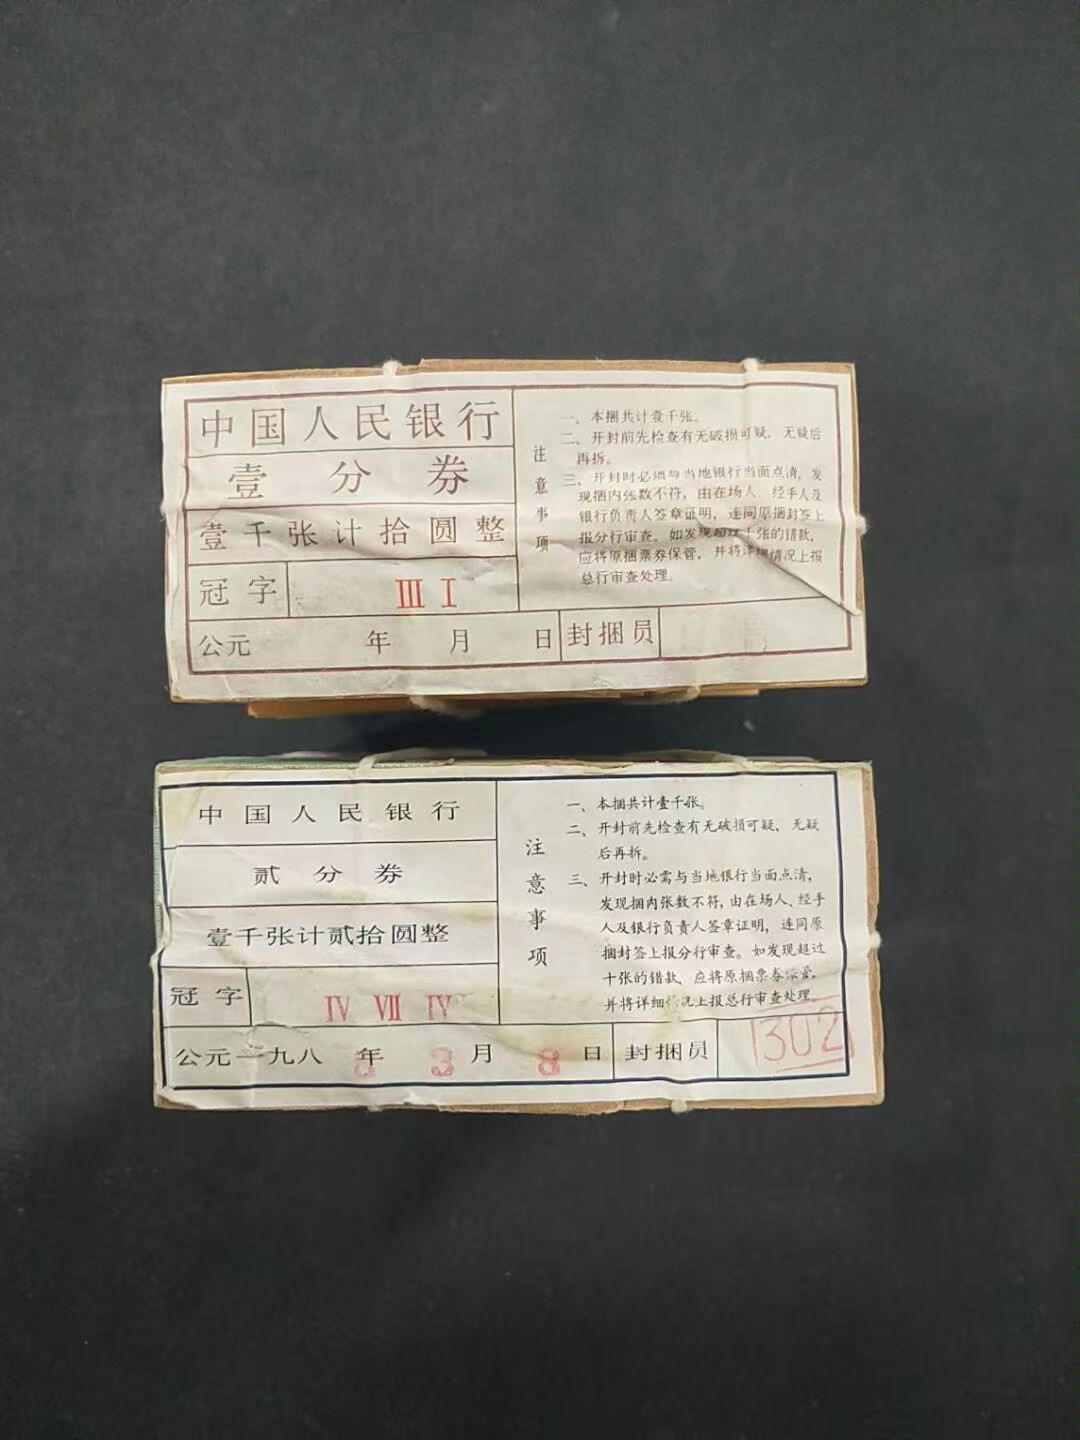 中国人民银行
壹分券
壹千张计拾圆整
冠字 III I
公元 年 月 日 封捆员
注意事项
一、本捆共计壹千张。
二、开封前先检查有无破损可疑，无疑后
再拆。
三、开封时必须与当地银行当面点清，发
现捆内张数不符，由在场人、经手人及
银行负责人签章证明，连同原捆封签上
报分行审查。如发现超过十张的错款，
应将原捆票券保管，并将详细情况上报
总行审查处理。
中国人民银行
贰分券
壹千张计贰拾圆整
冠字 IV VII IV
公元一九八 年 3 月 8 日 封捆员 302
注意事项
一、本捆共计壹千张。
二、开封前先检查有无破损可疑，无疑
后再拆。
三、开封时必需与当地银行当面点清，
发现捆内张数不符，由在场人、经手
人及银行负责人签章证明，连同原
捆封签上报分行审查。如发现超过
十张的错款，应将原捆票券保管，
并将详细情况上报总行审查处理。